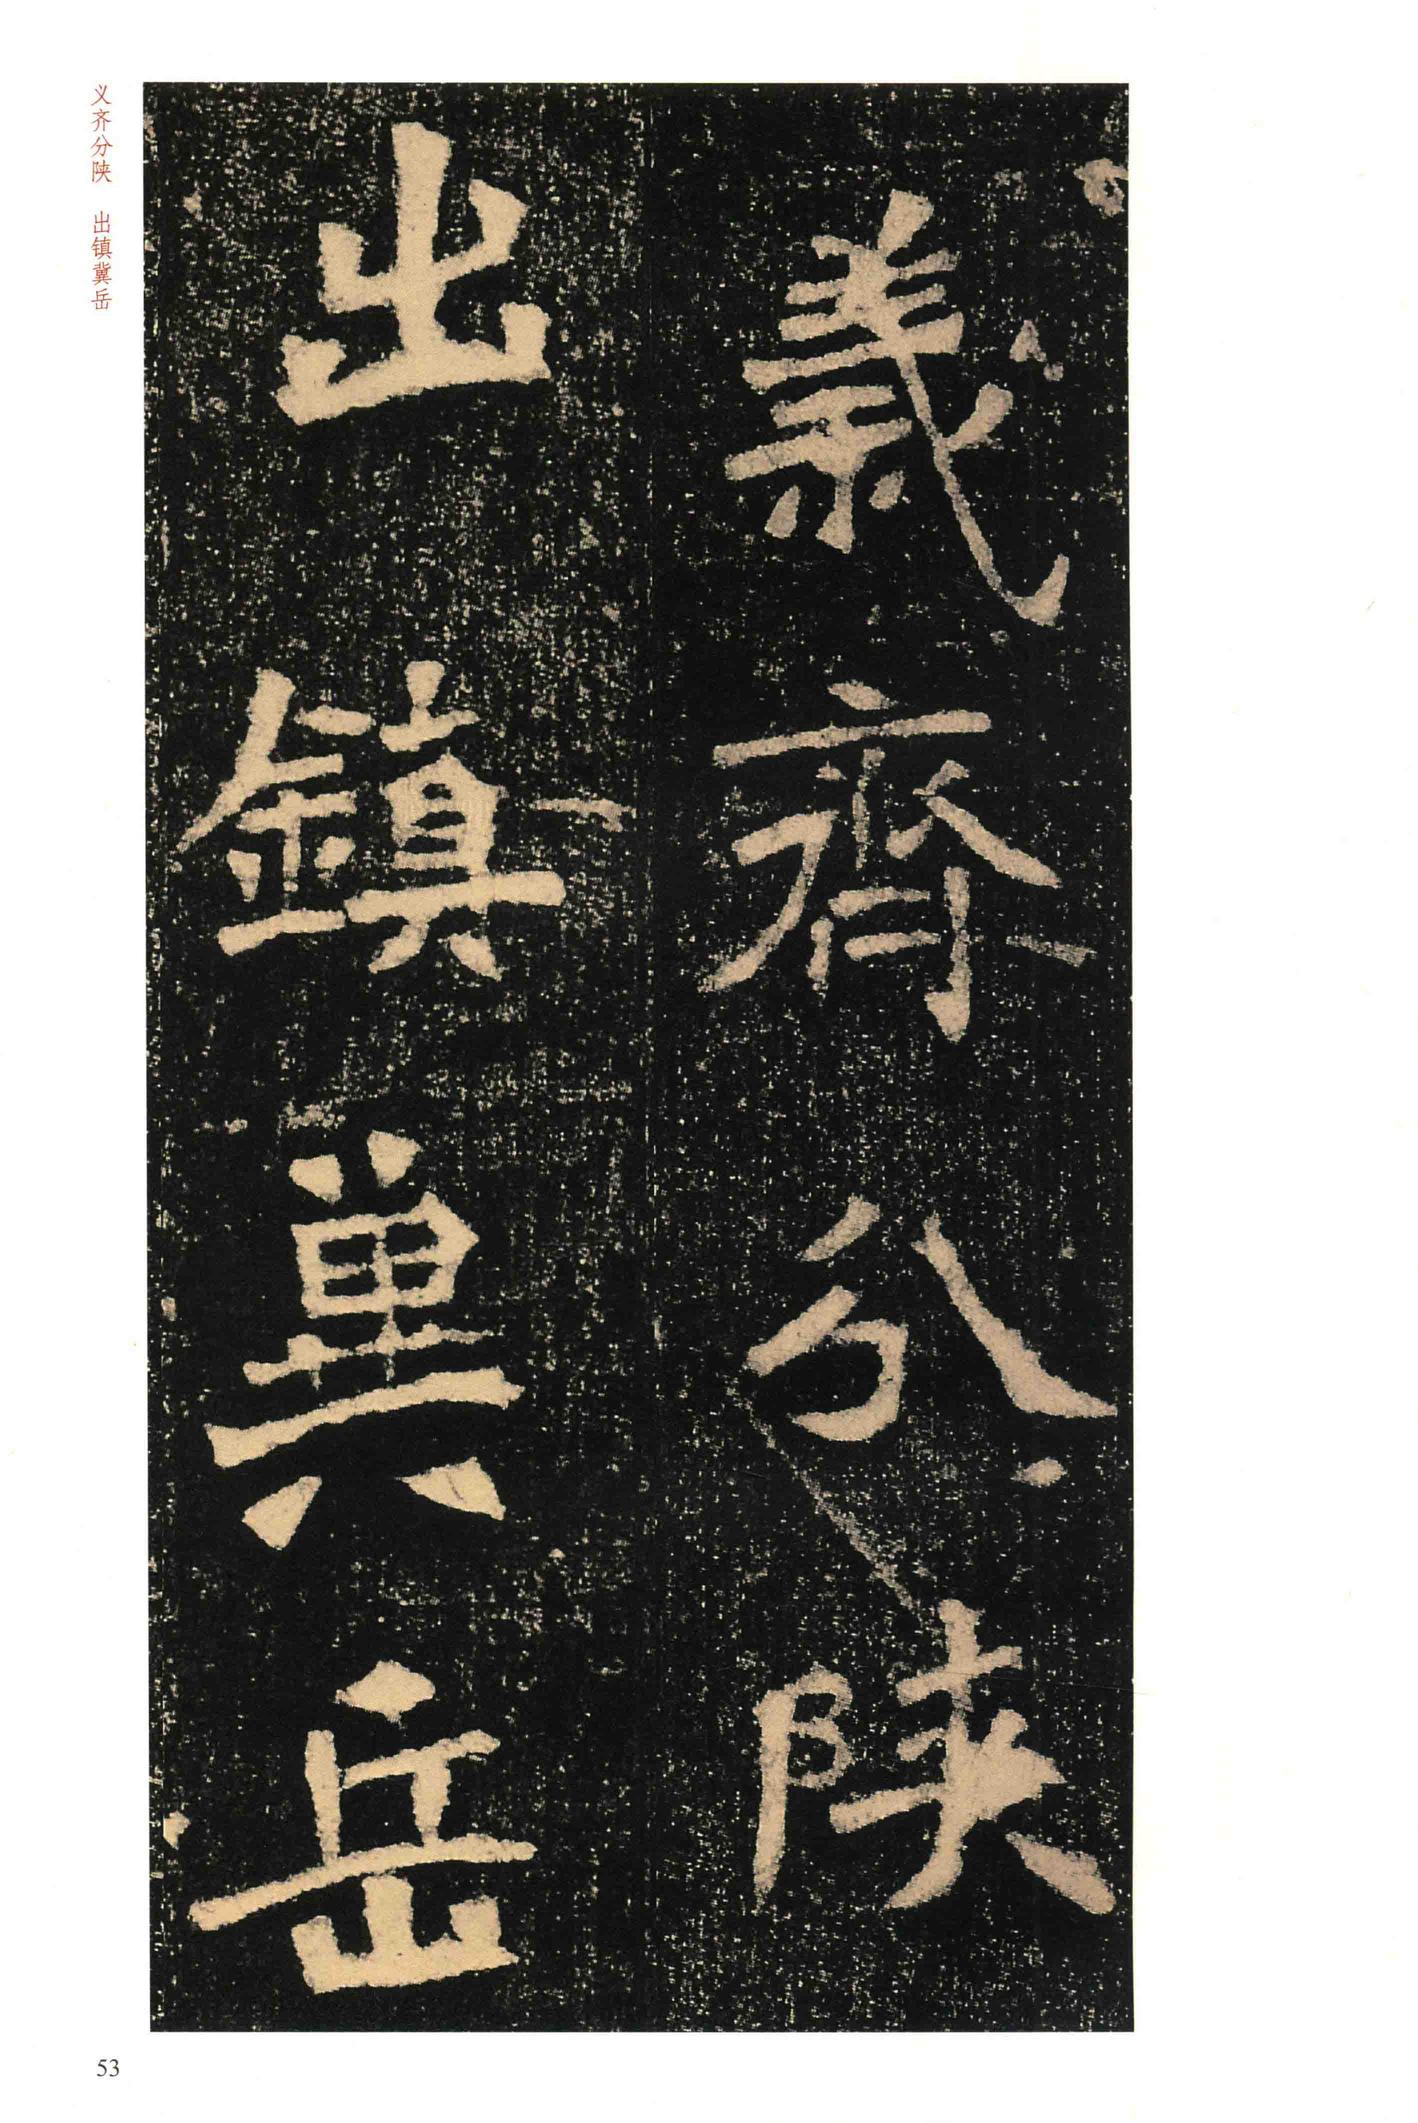 義齊分陝
出鎮冀岳
义齐分陕　出镇冀岳
53